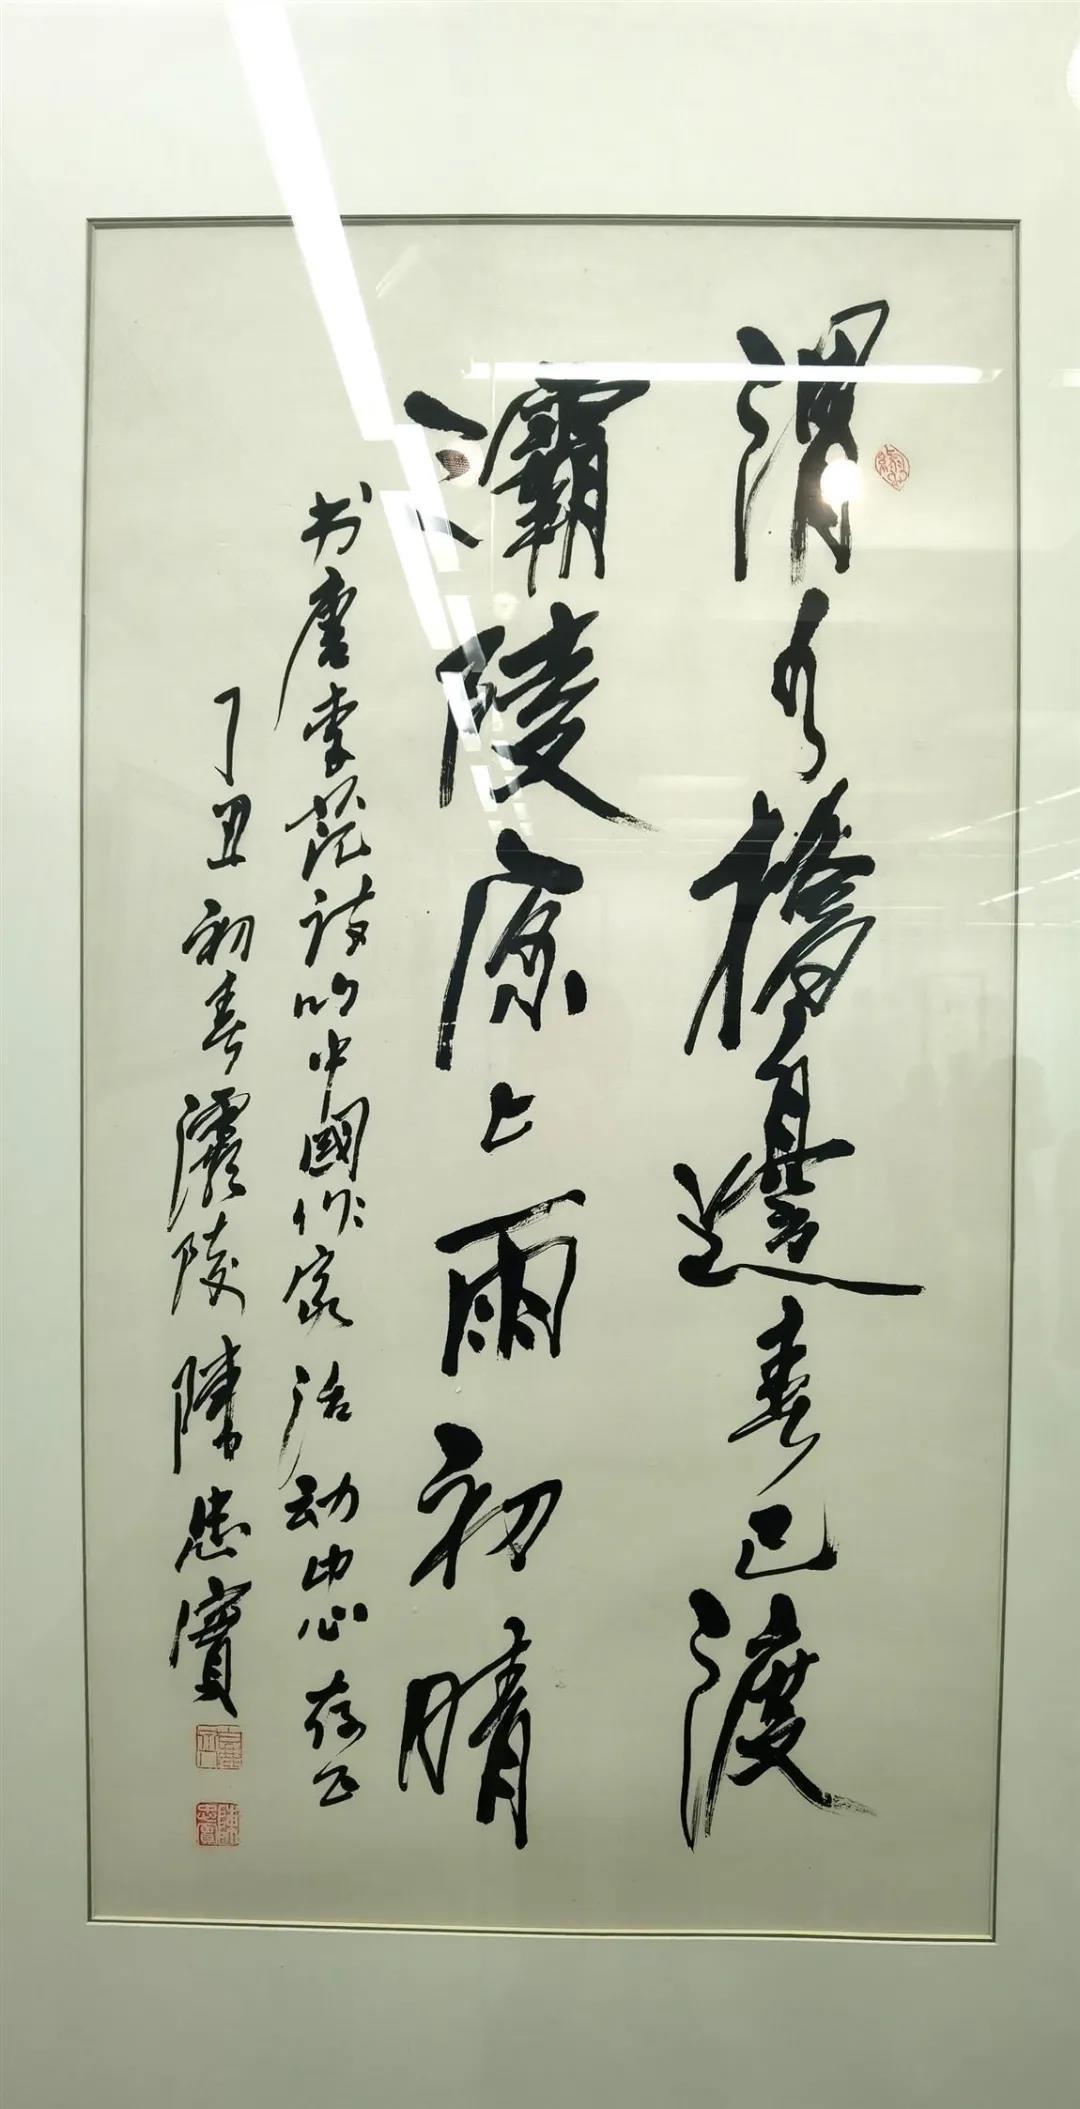 渭水橋邊春已渡
灞陵原上雨初晴
书唐李范诗 中國作家活动中心存正
丁丑初春灞陵陳忠實
陳忠實